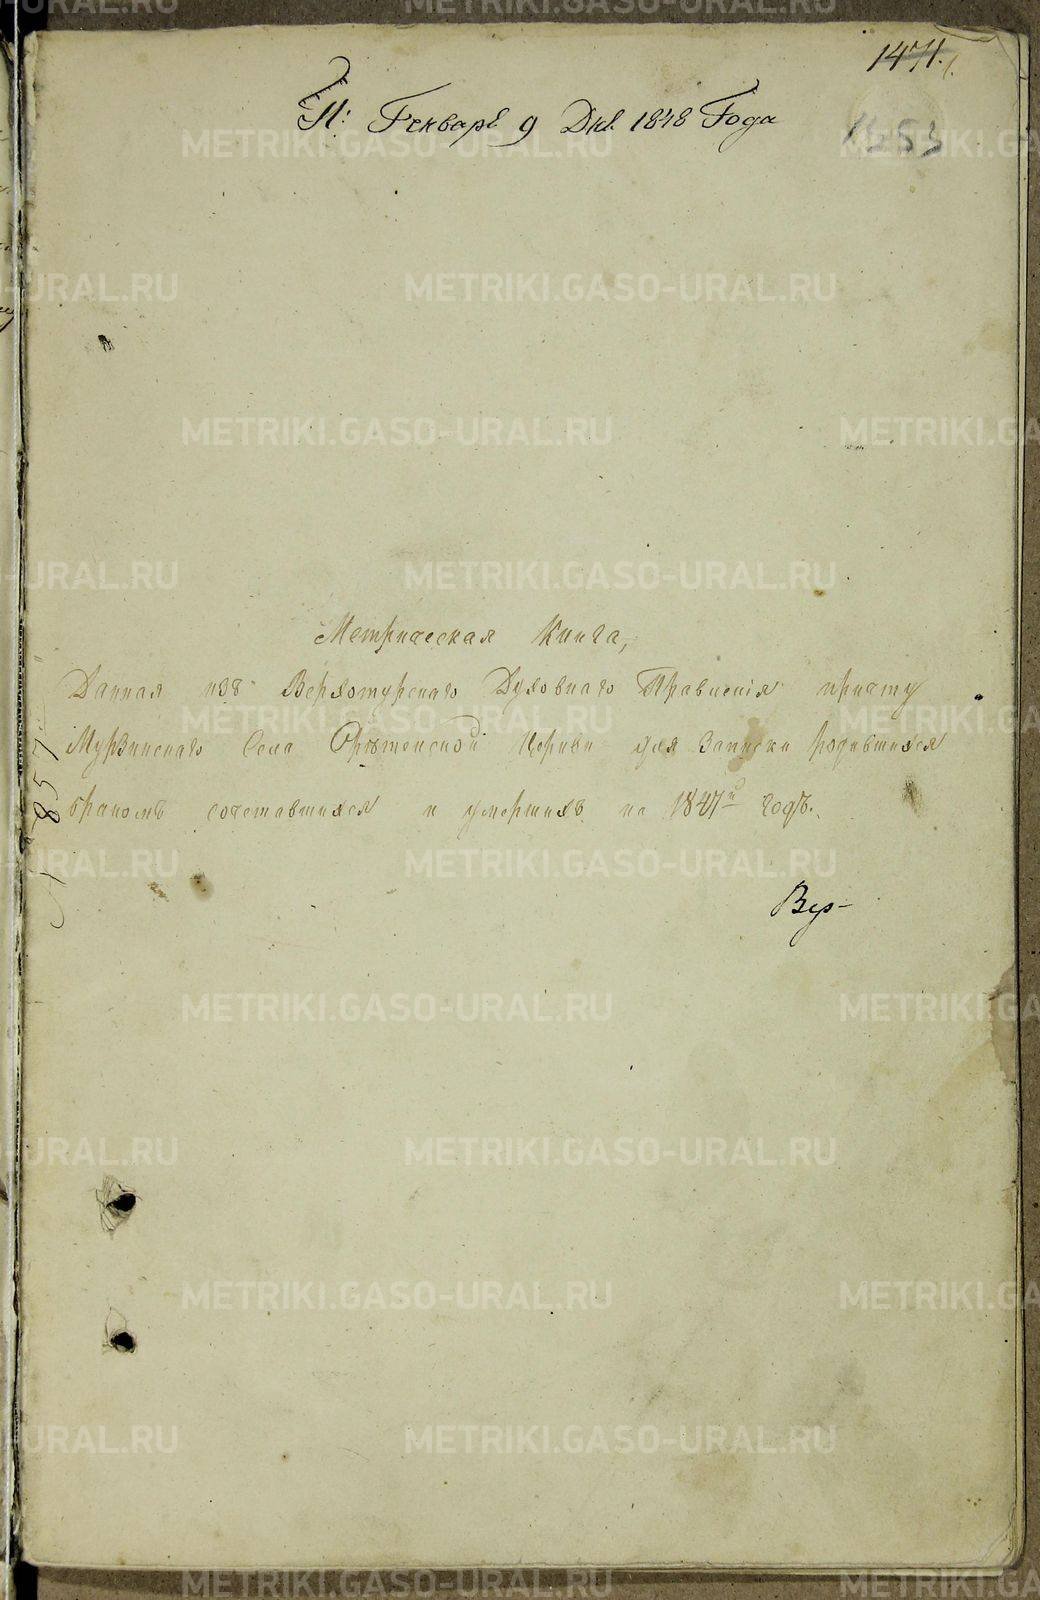 1471.
1453
П: Генваря 9 Дня 1848 Года
Метрическая Книга,
Данная изъ Верхотурскаго Духовнаго Правленія причту
Мурзинскаго Села Срѣтенской Церкви для Записки родившихся
бракомъ сочетавшихся и умершихъ на 1847й годъ.
857
Вер-
METRIKI.GASO-URAL.RU